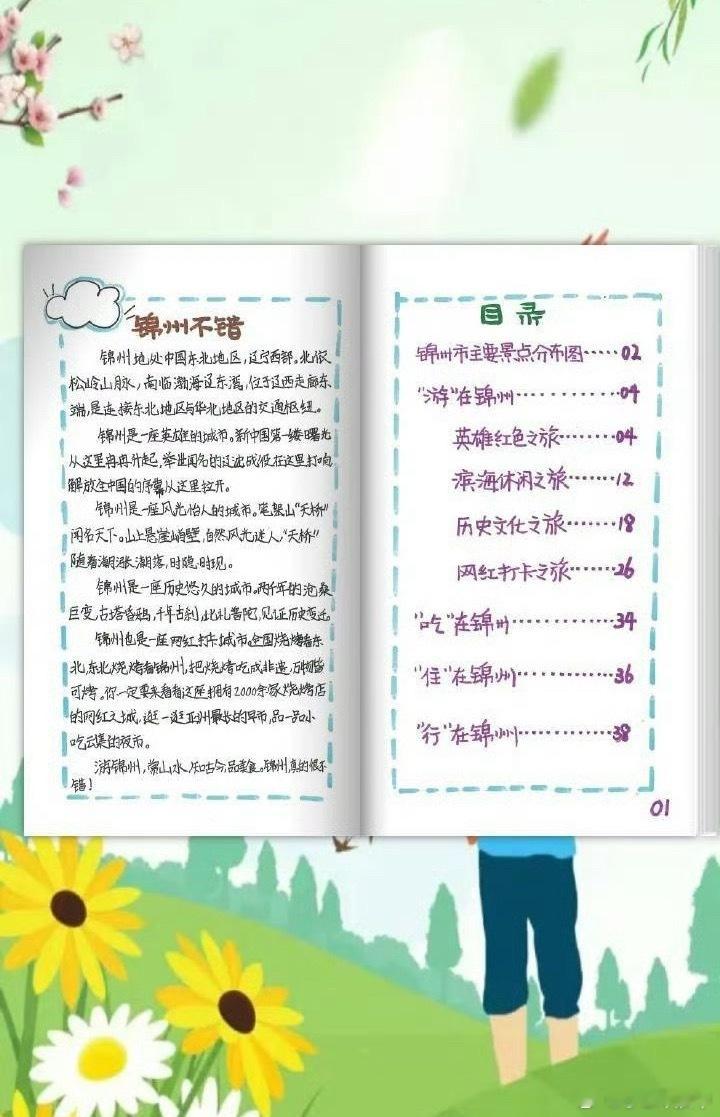 锦州不错
锦州地处中国东北地区,辽宁西部。北依
松岭山脉,南临渤海辽东湾,位于辽西走廊东
端,是连接东北地区与华北地区的交通枢纽。
锦州是一座英雄的城市。新中国第一缕曙光
从这里冉冉升起,举世闻名的辽沈战役在这里打响
解放全中国的序幕从这里拉开。
锦州是一座风光怡人的城市。笔架山“天桥”
闻名天下。山上悬崖峭壁,自然风光迷人,“天桥”
随着潮涨潮落,时隐时现。
锦州是一座历史悠久的城市。两千年的沧桑
巨变,古塔昏鸦,千年古刹,北礼普陀,见证历史变迁。
锦州也是一座网红打卡城市。全国烧烤看东
北,东北烧烤看锦州,把烧烤吃成非遗,万物皆
可烤。你一定要来看看这座拥有2000余家烧烤店
的网红之城,逛一逛亚洲最长的早市,品一品小
吃云集的夜市。
游锦州,赏山水,知古今,品美食。锦州真的很不
错!
目录
锦州市主要景点分布图······02
“游”在锦州··········04
英雄红色之旅········04
滨海休闲之旅·······12
历史文化之旅·······18
网红打卡之旅·······26
“吃”在锦州···········34
“住”在锦州··········36
“行”在锦州··········38
01